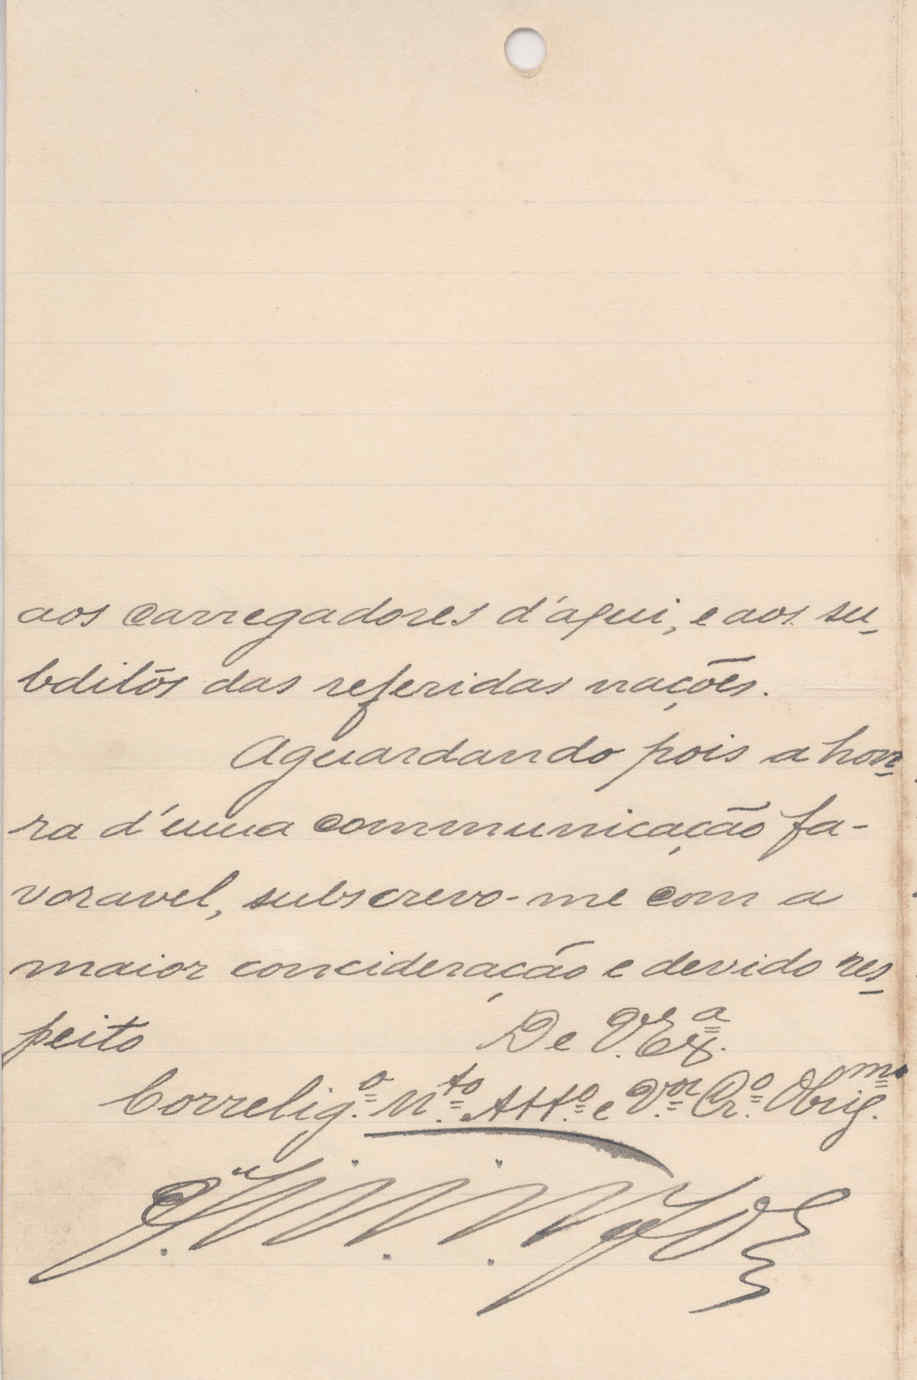 aos carregadores d'aqui, e aos su-
bditós das referidas nações.
Aguardando pois a hon-
ra d'uma communicação fa-
voravel, subscrevo-me com a
maior concideração e devido res-
peito De V. Exª.
Correligº. Mtº. Attº. e Vor. Crº. Obrigmº.